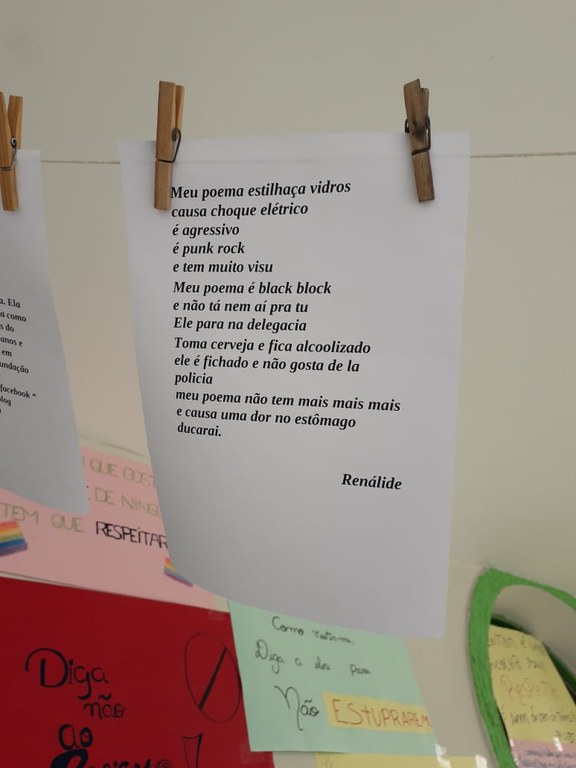 Meu poema estilhaça vidros
causa choque elétrico
é agressivo
é punk rock
e tem muito visu
Meu poema é black block
e não tá nem aí pra tu
Ele para na delegacia
Toma cerveja e fica alcoolizado
ele é fichado e não gosta de la
policia
meu poema não tem mais mais mais
e causa uma dor no estômago
ducarai.
Renálide
a. Ela
a como
s do
anos e
em
undação
facebook "
log
QUE GOST
DE NINGU
TEM QUE RESPEITAR
Diga
não
ao
Como
Diga a
Não ESTUPRAREM